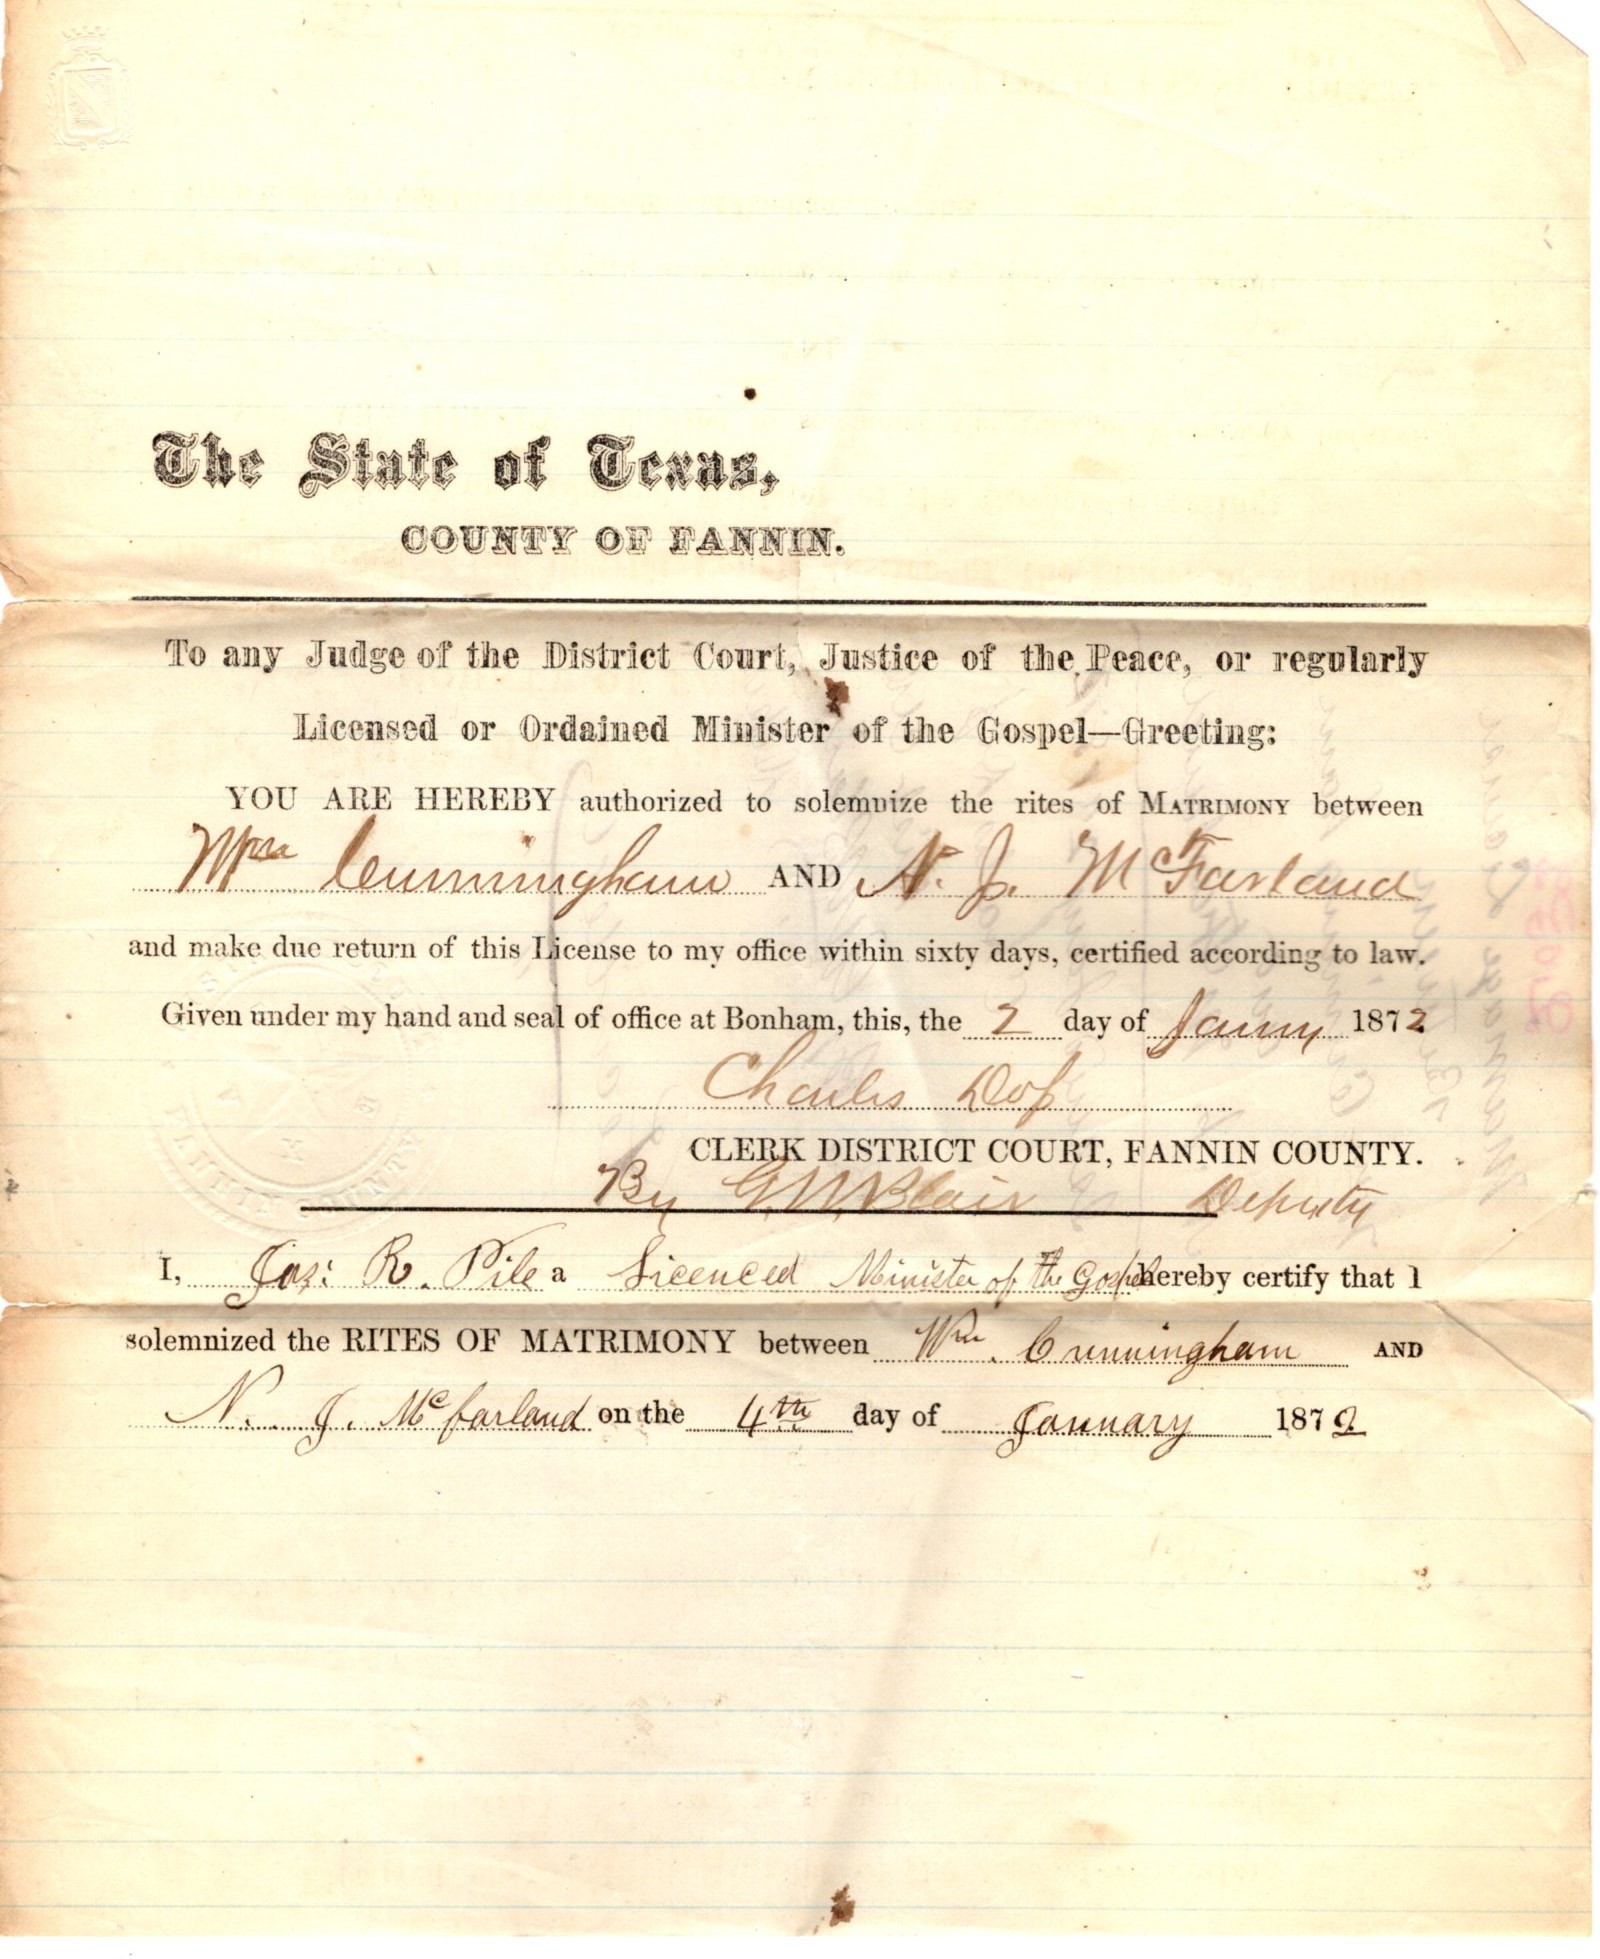 The State of Texas,
COUNTY OF FANNIN.
To any Judge of the District Court, Justice of the Peace, or regularly
Licensed or Ordained Minister of the Gospel—Greeting:
YOU ARE HEREBY authorized to solemnize the rites of MATRIMONY between
Wm Cunningham AND N. J. McFarland
and make due return of this License to my office within sixty days, certified according to law.
Given under my hand and seal of office at Bonham, this, the 2 day of Jany 1872
Charles
CLERK DISTRICT COURT, FANNIN COUNTY.
By Blair Deputy
I, Jas: R. Pile a Licenced Minister of the Gospel hereby certify that I
solemnized the RITES OF MATRIMONY between Wm. Cunningham AND
N. J. McFarland on the 4th day of January 1872